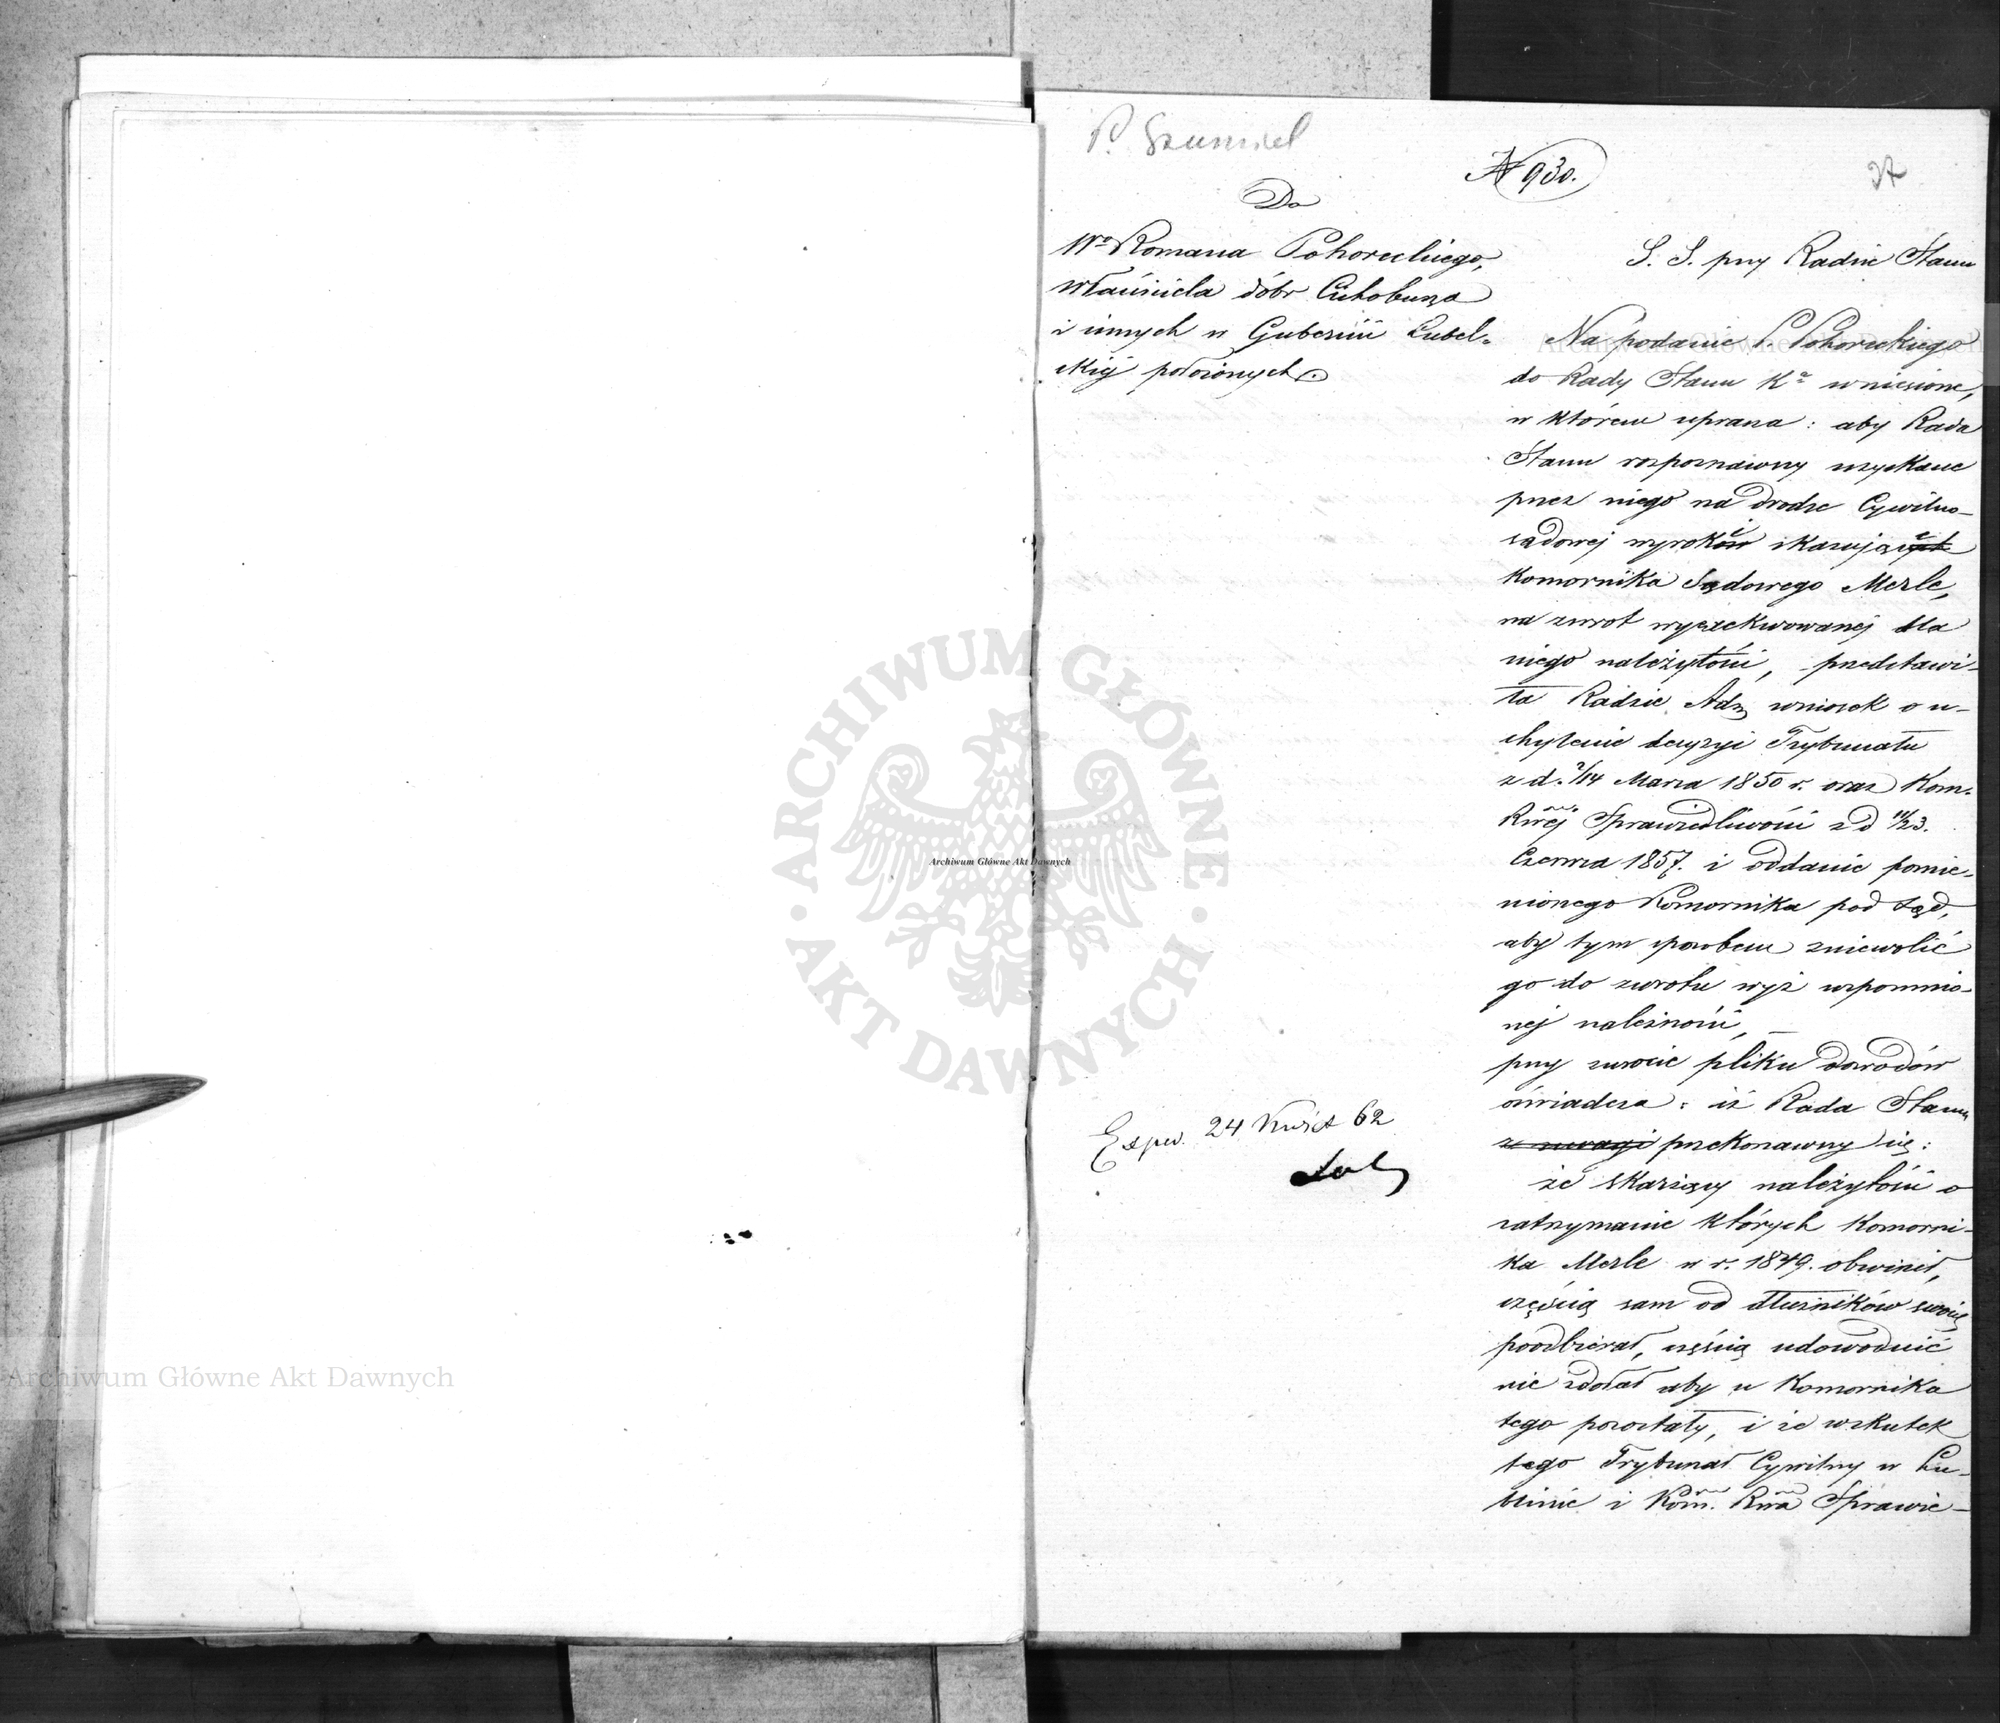 P. Szumiel
N 930.
27
Do
Wo Romana Pohoreckiego,
właściciela dóbr Cichoburza
i innych w Gubernii Lubel-
skiej położonych.
S. S. przy Radzie Stanu
Na podanie P. Pohoreckiego
do Rady Stanu Ka wniesione,
w którem uprasza: aby Rada
Stanu rozpoznawszy uzyskane
przez niego na drodze Cywilno-
sądowej wyroki skazujące
Komornika Sądowego Merle,
na zwrot wyezekwowanej dla
niego należytości, przedstawi-
ła Radzie Adz wniosek o u-
chylenie decyzyi Trybunału
z d. 2/14 Marca 1850 r. oraz Kom.
Rwej Sprawiedliwości z d 11/23.
Czerwca 1857. i oddanie pomie-
nionego Komornika pod Sąd,
aby tym sposobem zniewolić
go do zwrotu wyż wspomnio-
nej należności,
przy zwrocie pliku dowodów
oświadcza: iż Rada Stanu
ze uwagi przekonawszy się:
że skarżący należytości o
zatrzymanie których Komorni-
ka Merle w r. 1849. obwinił,
częścią sam od dłużników swoich
poodbierał, częścią udowodnić
nie zdołał aby u Komornika
tego pozostały, i że wskutek
tego Trybunał Cywilny w Lu-
blinie i Kom. Rwa Sprawie-
Exped. 24 Kwiet 62
ARCHIWUM GŁÓWNE AKT DAWNYCH
Archiwum Główne Akt Dawnych
Archiwum Główne Akt Dawnych